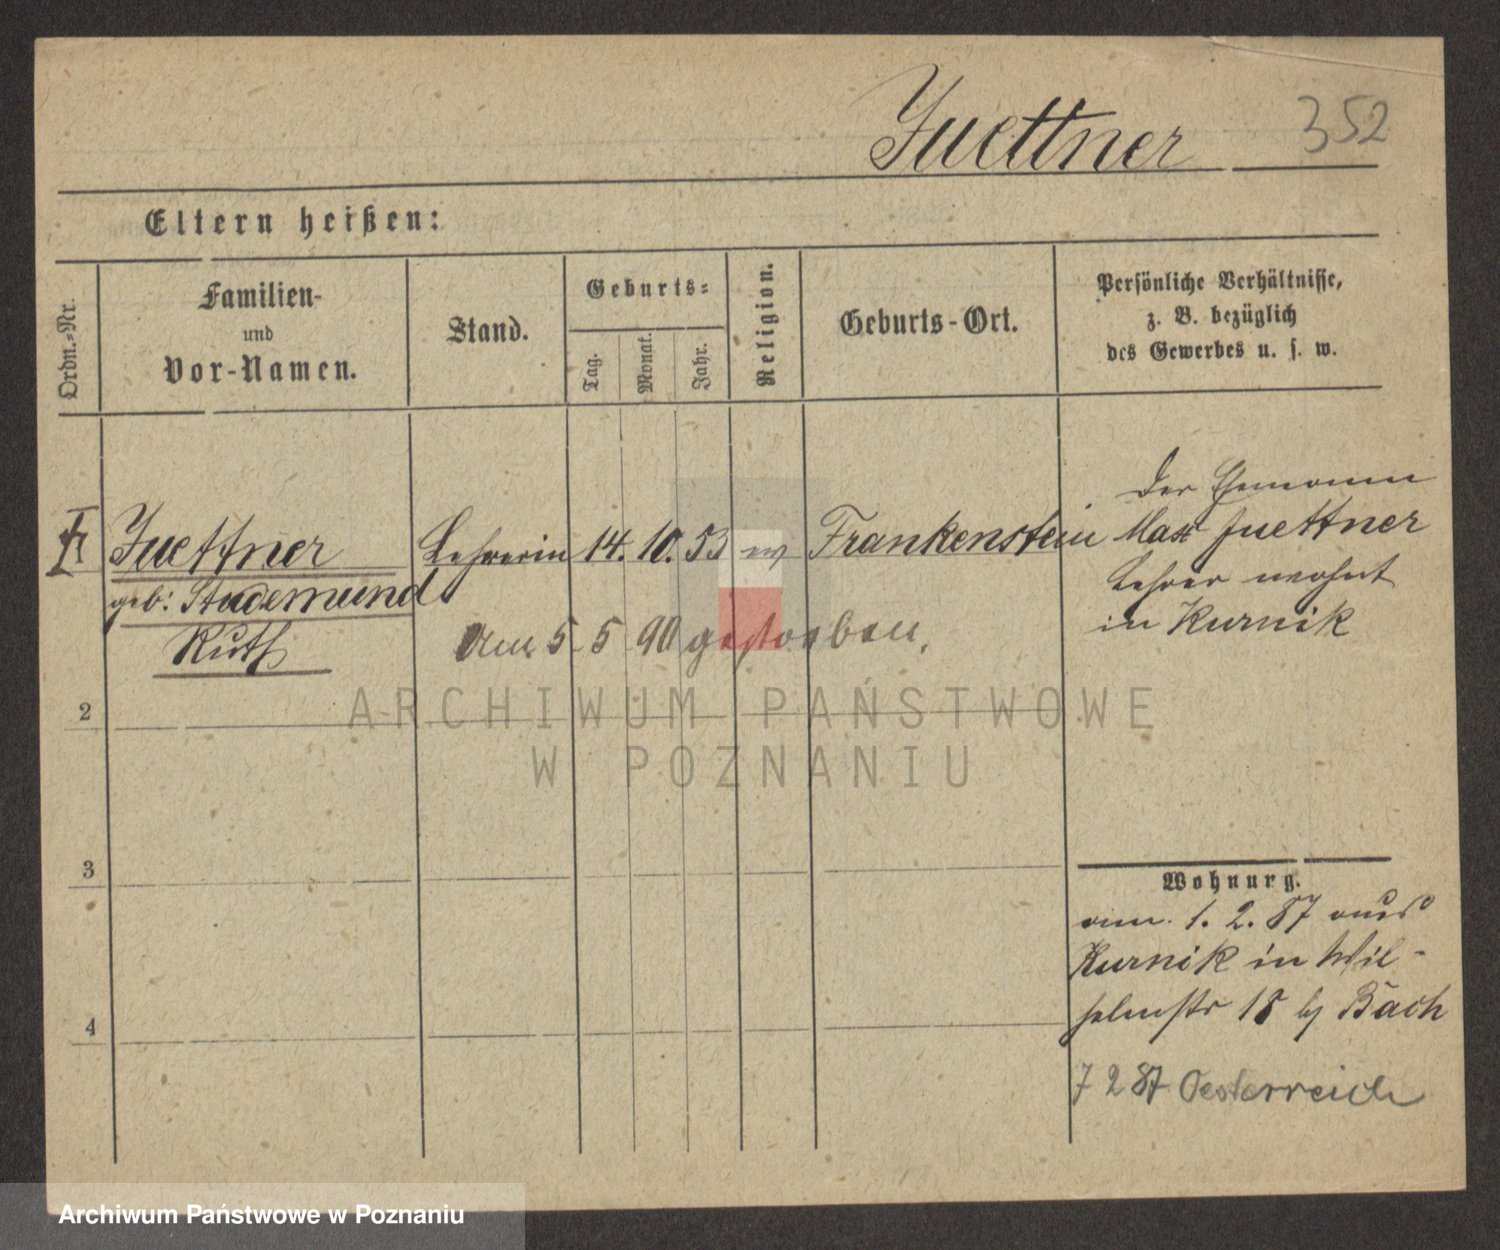 Juettner 352
Eltern heißen:
Ordn.-Nr.
Familien-
und
Vor-Namen.
Stand.
Geburts-
Tag.
Monat.
Jahr.
Religion.
Geburts-Ort.
Persönliche Verhältnisse,
z. B. bezüglich
des Gewerbes u. s. w.
Der Ehemann
Juettner Lehrerin 14. 10. 53 ev Frankenstein Max Juettner
geb: Studemund
Lehrer wohnt
Ruth
in Kurnik
Am 5 5 90 gestorben.
2
ARCHIWUM PAŃSTWOWE
W POZNANIU
3
Wohnung.
am 1. 2. 87 aus
Kurnik in Wil-
helmstr 18 b/ Bach
4
7 2 87 Oesterreich
Archiwum Państwowe w Poznaniu